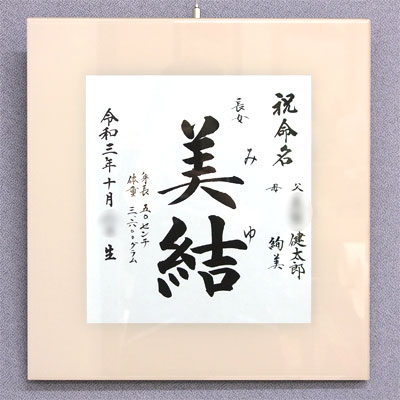 祝命名
父 健太郎
母 絢美
長女
みゆ
美結
身長 五〇センチ
体重 三、六〇〇グラム
令和三年十月 生